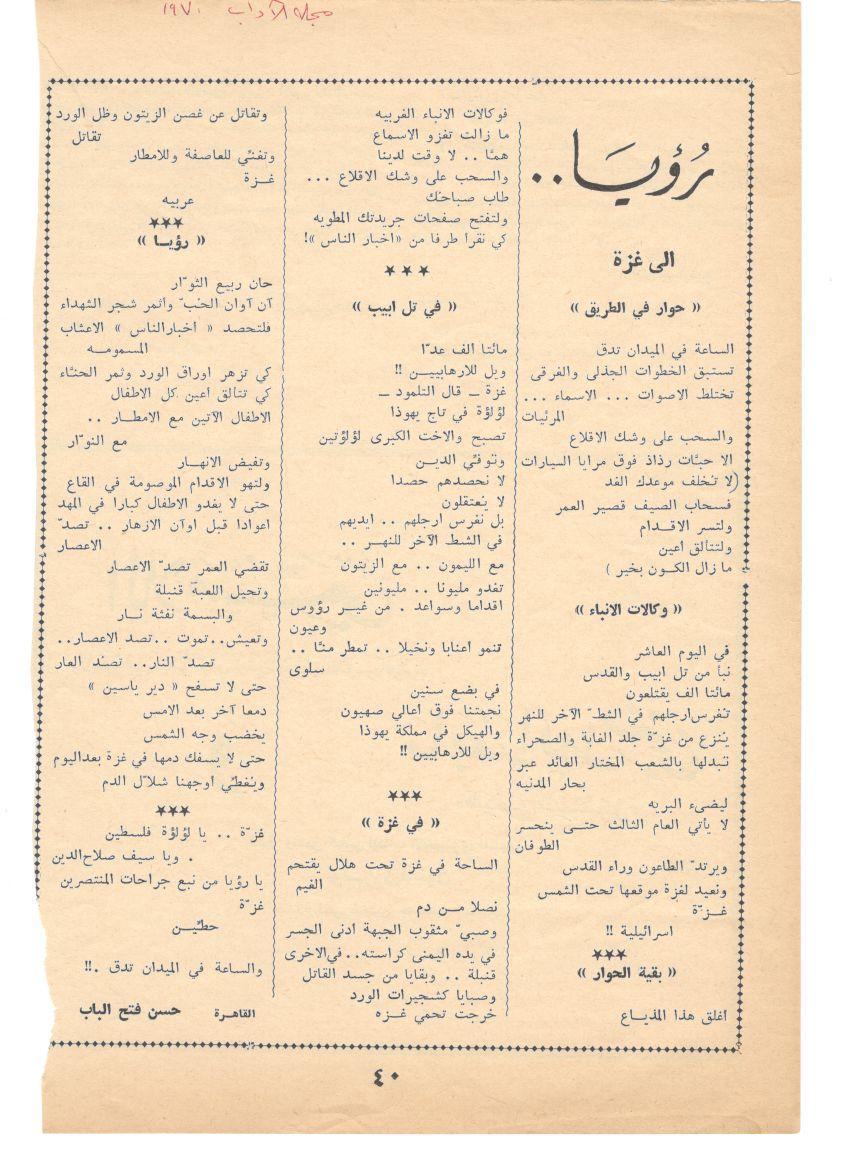 مجلة الآداب ١٩٧٠
رُؤيَا..
الى غزة
« حوار في الطريق »
الساعة في الميدان تدق
تستبق الخطوات الجذلى والغرقى
تختلط الاصوات ... الاسماء ...
المرئيات
والسحب على وشك الاقلاع
الا حبّات رذاذ فوق مرايا السيارات
(لا تخلف موعدك الغد
فسحاب الصيف قصير العمر
ولتسر الاقدام
ولتتألق أعين
ما زال الكون بخير )
« وكالات الانباء »
في اليوم العاشر
نبأ من تل ابيب والقدس
مائتا الف يقتلعون
تغرس ارجلهم في الشطّ الآخر للنهر
ينزع من غزّة جلد الغابة والصحراء
نبدلها بالشعب المختار العائد عبر
بحار المدنيه
ليضىء البريه
لا يأتي العام الثالث حتى ينحسر
الطوفان
ويرتدّ الطاعون وراء القدس
ونعيد لغزة موقعها تحت الشمس
غزّة
اسرائيلية !!
***
« بقية الحوار »
أغلق هذا المذياع
فوكالات الانباء الغربيه
ما زالت تغزو الاسماع
همّا .. لا وقت لدينا
والسحب على وشك الاقلاع ...
طاب صباحك
ولتفتح صفحات جريدتك المطويه
كي نقرأ طرفا من «اخبار الناس»!
***
« في تل ابيب »
مائتا الف عدّا
ويل للارهابيين !!
غزة ــ قال التلمود ــ
لؤلؤة في تاج يهوذا
تصبح والاخت الكبرى لؤلؤتين
ونوفّي الدين
لا نحصدهم حصدا
لا يعتقلون
بل نغرس ارجلهم .. ايديهم
في الشط الآخر للنهر ..
مع الليمون .. مع الزيتون
تغدو مليونا .. مليونين
اقداما وسواعد . من غير رؤوس
وعيون
تنمو أعنابا ونخيلا .. تمطر منّا ..
سلوى
في بضع سنين
نجمتنا فوق أعالي صهيون
والهيكل في مملكة يهوذا
ويل للارهابيين !!
***
« في غزة »
الساحة في غزة تحت هلال يقتحم
الغيم
نصلا من دم
وصبيّ مثقوب الجبهة أدنى الجسر
في يده اليمنى كراسته.. في الاخرى
قنبلة .. وبقايا من جسد القاتل
وصبايا كشجيرات الورد
خرجت تحمي غزه
وتقاتل عن غصن الزيتون وظل الورد
تقاتل
وتغنّي للعاصفة وللامطار
غزة
عربيه
***
« رؤيا »
حان ربيع الثوّار
آن أوان الحبّ وأثمر شجر الشهداء
فلتحصد « أخبار الناس » الاعشاب
المسمومه
كي تزهر أوراق الورد وثمر الحنّاء
كي تتألق أعين كل الاطفال
الاطفال الآتين مع الامطار ..
مع النوّار
وتفيض الانهار
ولتهو الاقدام الموصومة في القاع
حتى لا يغدو الاطفال كبارا في المهد
اعوادا قبل اوان الازهار .. تصدّ
الاعصار
تقضي العمر تصدّ الاعصار
وتحيل اللعبة قنبلة
والبسمة نفثة نار
وتعيش.. تموت .. تصد الاعصار..
تصدّ النار.. تصدّ العار
حتى لا تسفح « دير ياسين »
دمعا آخر بعد الامس
يخضب وجه الشمس
حتى لا يسفك دمها في غزة بعد اليوم
ويغطّي أوجهنا شلاّل الدم
***
غزّة .. يا لؤلؤة فلسطين
. ويا سيف صلاح الدين
يا رؤيا من نبع جراحات المنتصرين
غزّة
حطّين
والساعة في الميدان تدق .!!
القاهرة حسن فتح الباب
٤٠